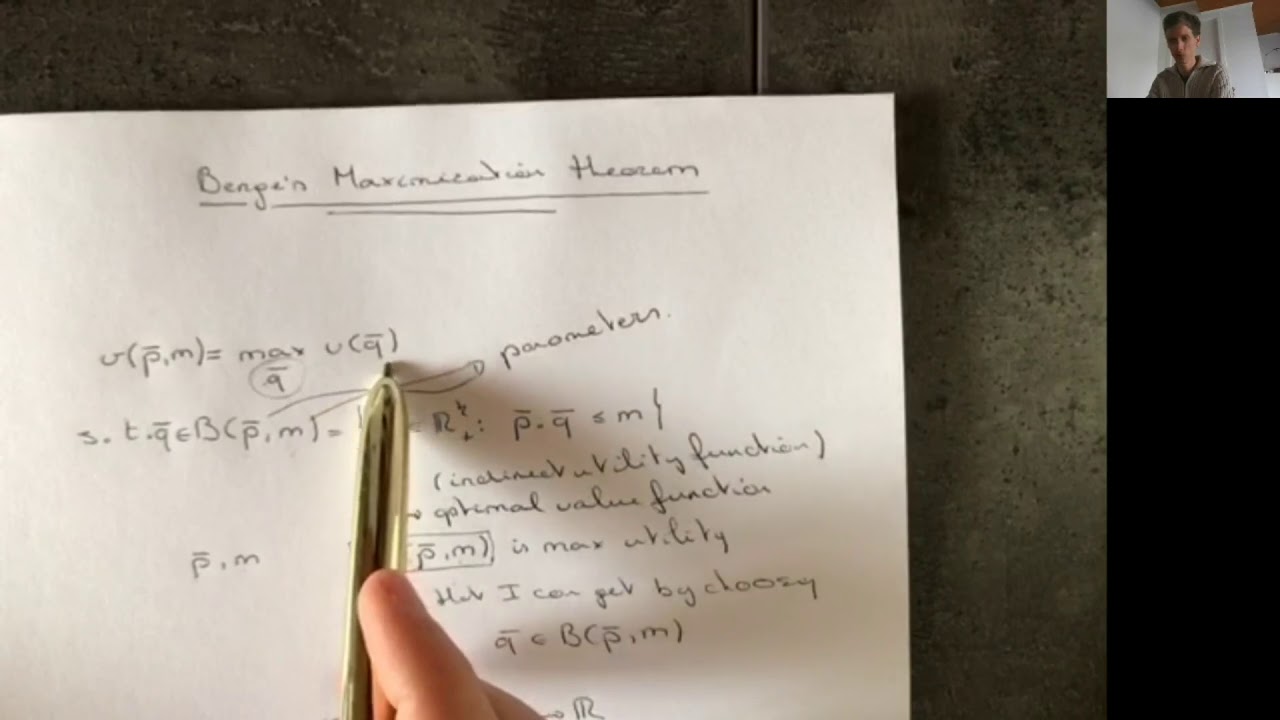 Berge's Maximization theorem
v(p̄,m)= max u(q̄) parameters.
q̄
s.t. q̄ ∈ B(p̄,m) = ∈ ℝ₊ᵏ : p̄.q̄ ≤ m}
(indirect utility function)
optimal value function
p̄,m p̄,m) is max utility
that I can get by choosing
q̄ ∈ B(p̄,m)
→ ℝ